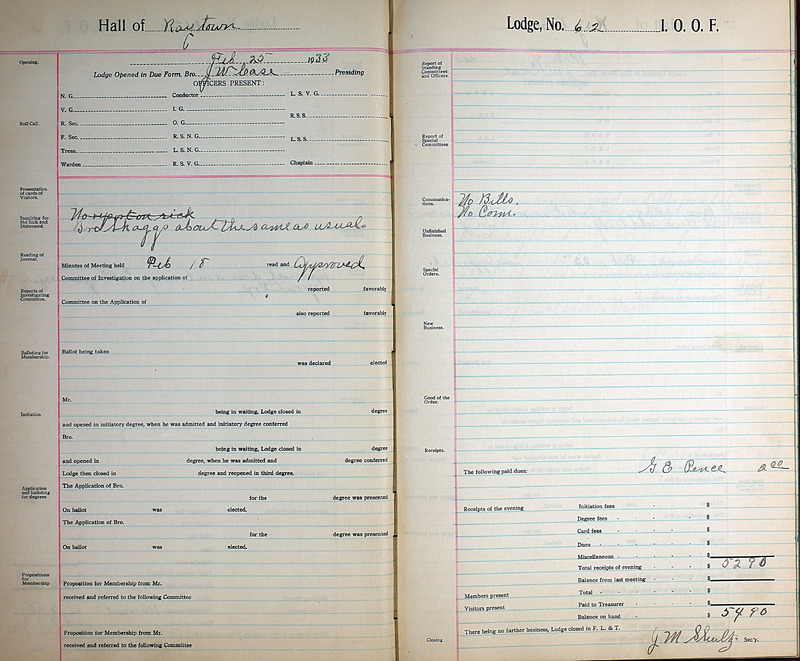 Hall of Raytown
Lodge, No. 612 I. O. O. F.
Opening.
Feb 25 1933
Lodge Opened in Due Form, Bro. J W Case Presiding
OFFICERS PRESENT:
Roll Call.
N. G. Conductor L. S. V. G.
V. G. I. G.
R. S. S.
R. Sec. O. G.
F. Sec. R. S. N. G.
L. S. S.
Treas. L. S. N. G.
Warden R. S. V. G. Chaplain
Presentation of cards of Visitors.
Inquiring for the Sick and Distressed.
No report on sick
Bro Skaggs about the same as usual.
Reading of Journal.
Minutes of Meeting held Feb 18 read and Approved
Committee of Investigation on the application of
Reports of Investigating Committee.
reported favorably
Committee on the Application of
also reported favorably
Balloting for Membership.
Ballot being taken
was declared elected
Mr.
Initiation
being in waiting, Lodge closed in degree
and opened in initiatory degree, when he was admitted and initiatory degree conferred
Bro.
being in waiting, Lodge closed in degree
and opened in degree, when he was admitted and degree conferred
Lodge then closed in degree and reopened in third degree.
Application and balloting for degrees
The Application of Bro.
for the degree was presented
On ballot was elected.
The Application of Bro.
for the degree was presented
On ballot was elected.
Propositions for Membership
Proposition for Membership from Mr.
received and referred to the following Committee
Proposition for Membership from Mr.
received and referred to the following Committee
Report of Standing Committees and Officers.
Report of Special Committees
Communications.
No Bills.
No Com.
Unfinished Business.
Special Orders.
New Business.
Good of the Order.
Receipts.
The following paid dues: G E Pence 2 00
Receipts of the evening Initiation fees $
Degree fees $
Card fees $
Dues $
Miscellaneous $
Total receipts of evening $ 52 90
Balance from last meeting $
Members present Total $
Visitors present Paid to Treasurer $
Balance on hand $ 54 90
Closing
There being no further business, Lodge closed in F. L. & T.
J M Shultz Sec'y.